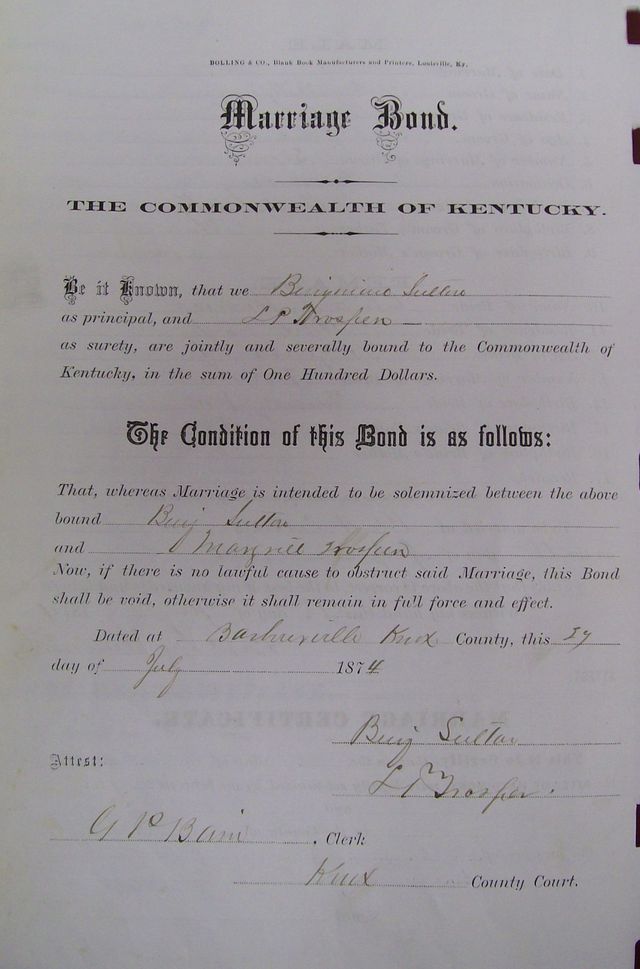 BOLLING & CO., Blank Book Manufacturers and Printers, Louisville, Ky.
Marriage Bond.
THE COMMONWEALTH OF KENTUCKY.
Be it Known, that we Benjamine Sutton
as principal, and L P Trosper
as surety, are jointly and severally bound to the Commonwealth of
Kentucky, in the sum of One Hundred Dollars.
The Condition of this Bond is as follows:
That, whereas Marriage is intended to be solemnized between the above
bound Benj Sutton
and Trosper
Now, if there is no lawful cause to obstruct said Marriage, this Bond
shall be void, otherwise it shall remain in full force and effect.
Dated at Barbourville Knox County, this
day of July 1874
Benj Sutton
Attest:
L P Trosper
G P Bain, Clerk
Knox County Court.